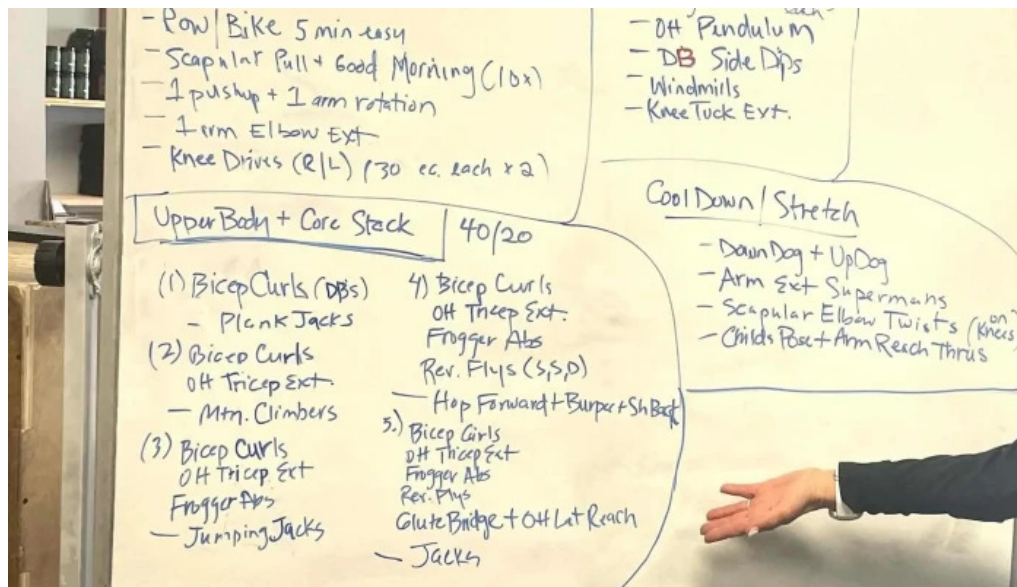 - Row/Bike 5 min easy
- Scapular Pull + Good Morning (10x)
- 1 pushup + 1 arm rotation
- 1 arm Elbow Ext
- Knee Drives (R/L) (30 ec. each x 2)
- OH Pendulum
- DB Side Dips
- Windmills
- Knee Tuck Ext.
Upper Body + Core Stack
40/20
(1) Bicep Curls (DB's)
- Plank Jacks
(2) Bicep Curls
OH Tricep Ext.
- Mtn. Climbers
(3) Bicep Curls
OH Tricep Ext
Frogger Abs
- Jumping Jacks
4) Bicep Curls
OH Tricep Ext.
Frogger Abs
Rev. Flys (S,S,D)
- Hop Forward + Burpee + Sh Back
5.) Bicep Curls
OH Tricep Ext
Frogger Abs
Rev. Flys
Glute Bridge + OH Lat Reach
- Jacks
Cool Down / Stretch
- Down Dog + Up Dog
- Arm Ext Supermans
- Scapular Elbow Twists (on Knees)
- Childs Pose + Arm Reach Thrus